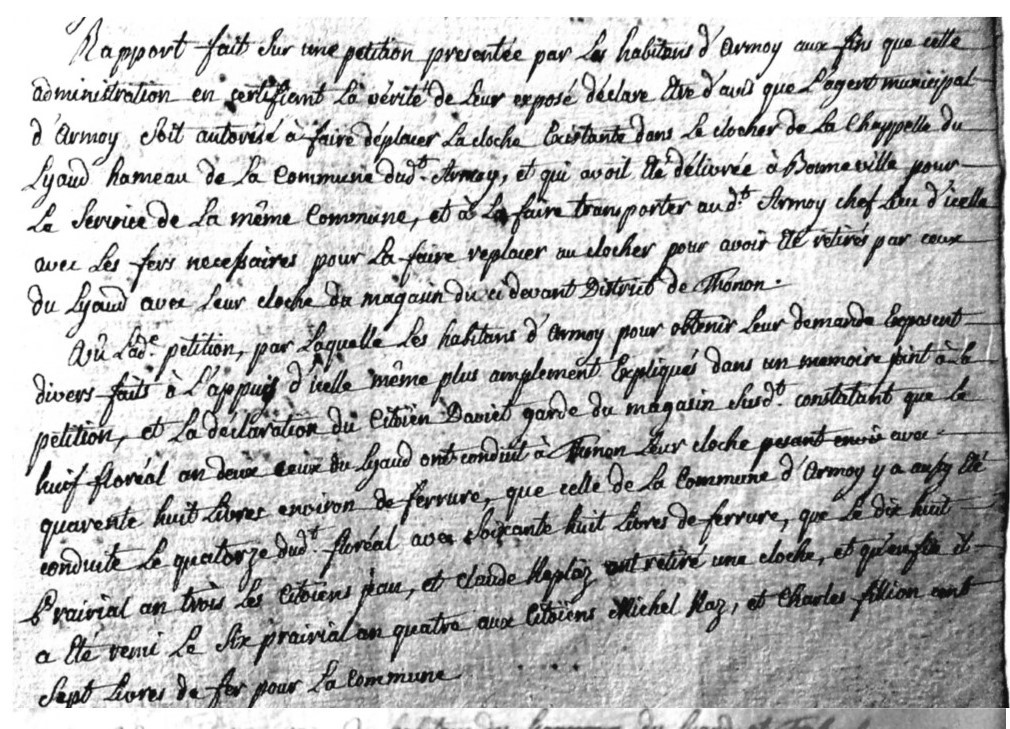 Rapport fait sur une petition presentée par les habitans d'Armoy aux fins que celle
administration en certifiant la vérité de leur exposé déclare etre d'avis que l'agent municipal
d'Armoy soit autorisé à faire déplacer la cloche Existante dans le clocher de la Chappelle du
Lyaud hameau de la Commune dud.t Armoy, et qui avoit été délivrée à Bonneville pour
le service de la même Commune, et à la faire transporter aud.t Armoy chef lieu d'icelle
avec les fers necessaires pour la faire replacer au clocher pour avoir été retirés par ceux
du Lyaud avec leur cloche du magasin du ci devant District de Thonon.
Vû lad.e petition, par laquelle les habitans d'Armoy pour obtenir leur demande Exposent
divers faits à l'appuis d'icelle même plus amplement Expliqués dans un memoire joint à la
petition, et la déclaration du Citoien Daniel garde du magasin susd.t constatant que le
huit floréal an deux ceux du Lyaud ont conduit à Thonon leur cloche pesant avec
quarente huit livres environ de ferrure, que celle de la Commune d'Armoy y a aussy été
conduite le quatorze dud.t floréal avec soixante huit livres de ferrure, que le dix huit
prairial an trois les Citoiens jean, et Claude ont retiré une cloche, et qu'ensuite il
a été remi le six prairial an quatre aux Citoiens Michel Naz, et Charles fillion cent
sept livres de fer pour la Commune